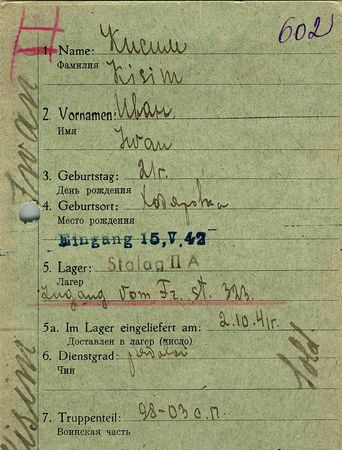 602
1. Name: Кисим
Фамилия Kisim
2. Vornamen: Иван
Имя Iwan
3. Geburtstag: 21г.
День рождения
4. Geburtsort: Ходяровка
Место рождения
Eingang 15.V.42
5. Lager: Stalag II A
Лагер
Zugang vom Fr. St. 323
5a. Im Lager eingeliefert am: 2.10.41г.
Доставлен в лагер (число)
6. Dienstgrad: рядовой
Чин
7. Truppenteil: 98-03 с.п.
Воинская часть
Kisim Iwan
Sold